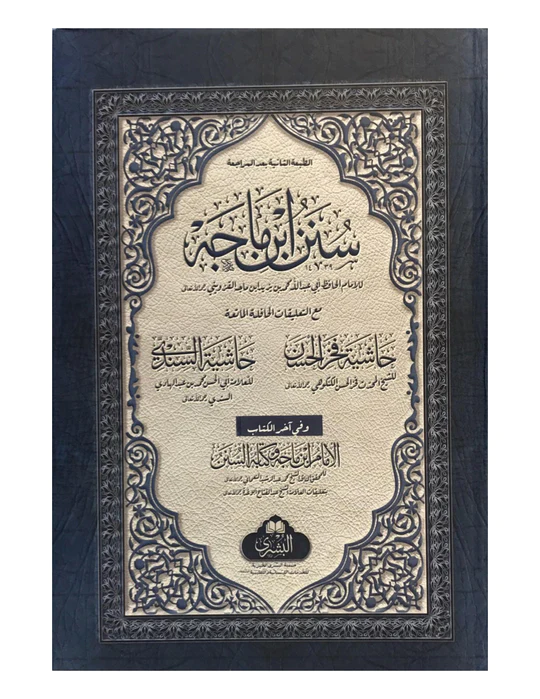 الطبعة الثانية بعد المراجعة
سُنَنُ ابْنِ مَاجَهْ
١٤٣٩
للإمام الحافظ أبي عبد الله محمد بن يزيد ابن ماجه القزويني رحمه الله تعالى
مع التعليقات الحافلة الماتعة
حاشية فخر الحسن
حاشية السندي
للشيخ المحدث فخر الحسن الكنكوهي رحمه الله تعالى
للعلامة أبي الحسن محمد بن عبد الهادي
السندي رحمه الله تعالى
وفي آخر الكتاب
الإمام ابن ماجه وكتابه السنن
للمحقق الشيخ محمد عبد الرشيد النعماني رحمه الله تعالى
بتعليقات العلامة الشيخ عبد الفتاح أبو غدة رحمه الله تعالى
البشرى